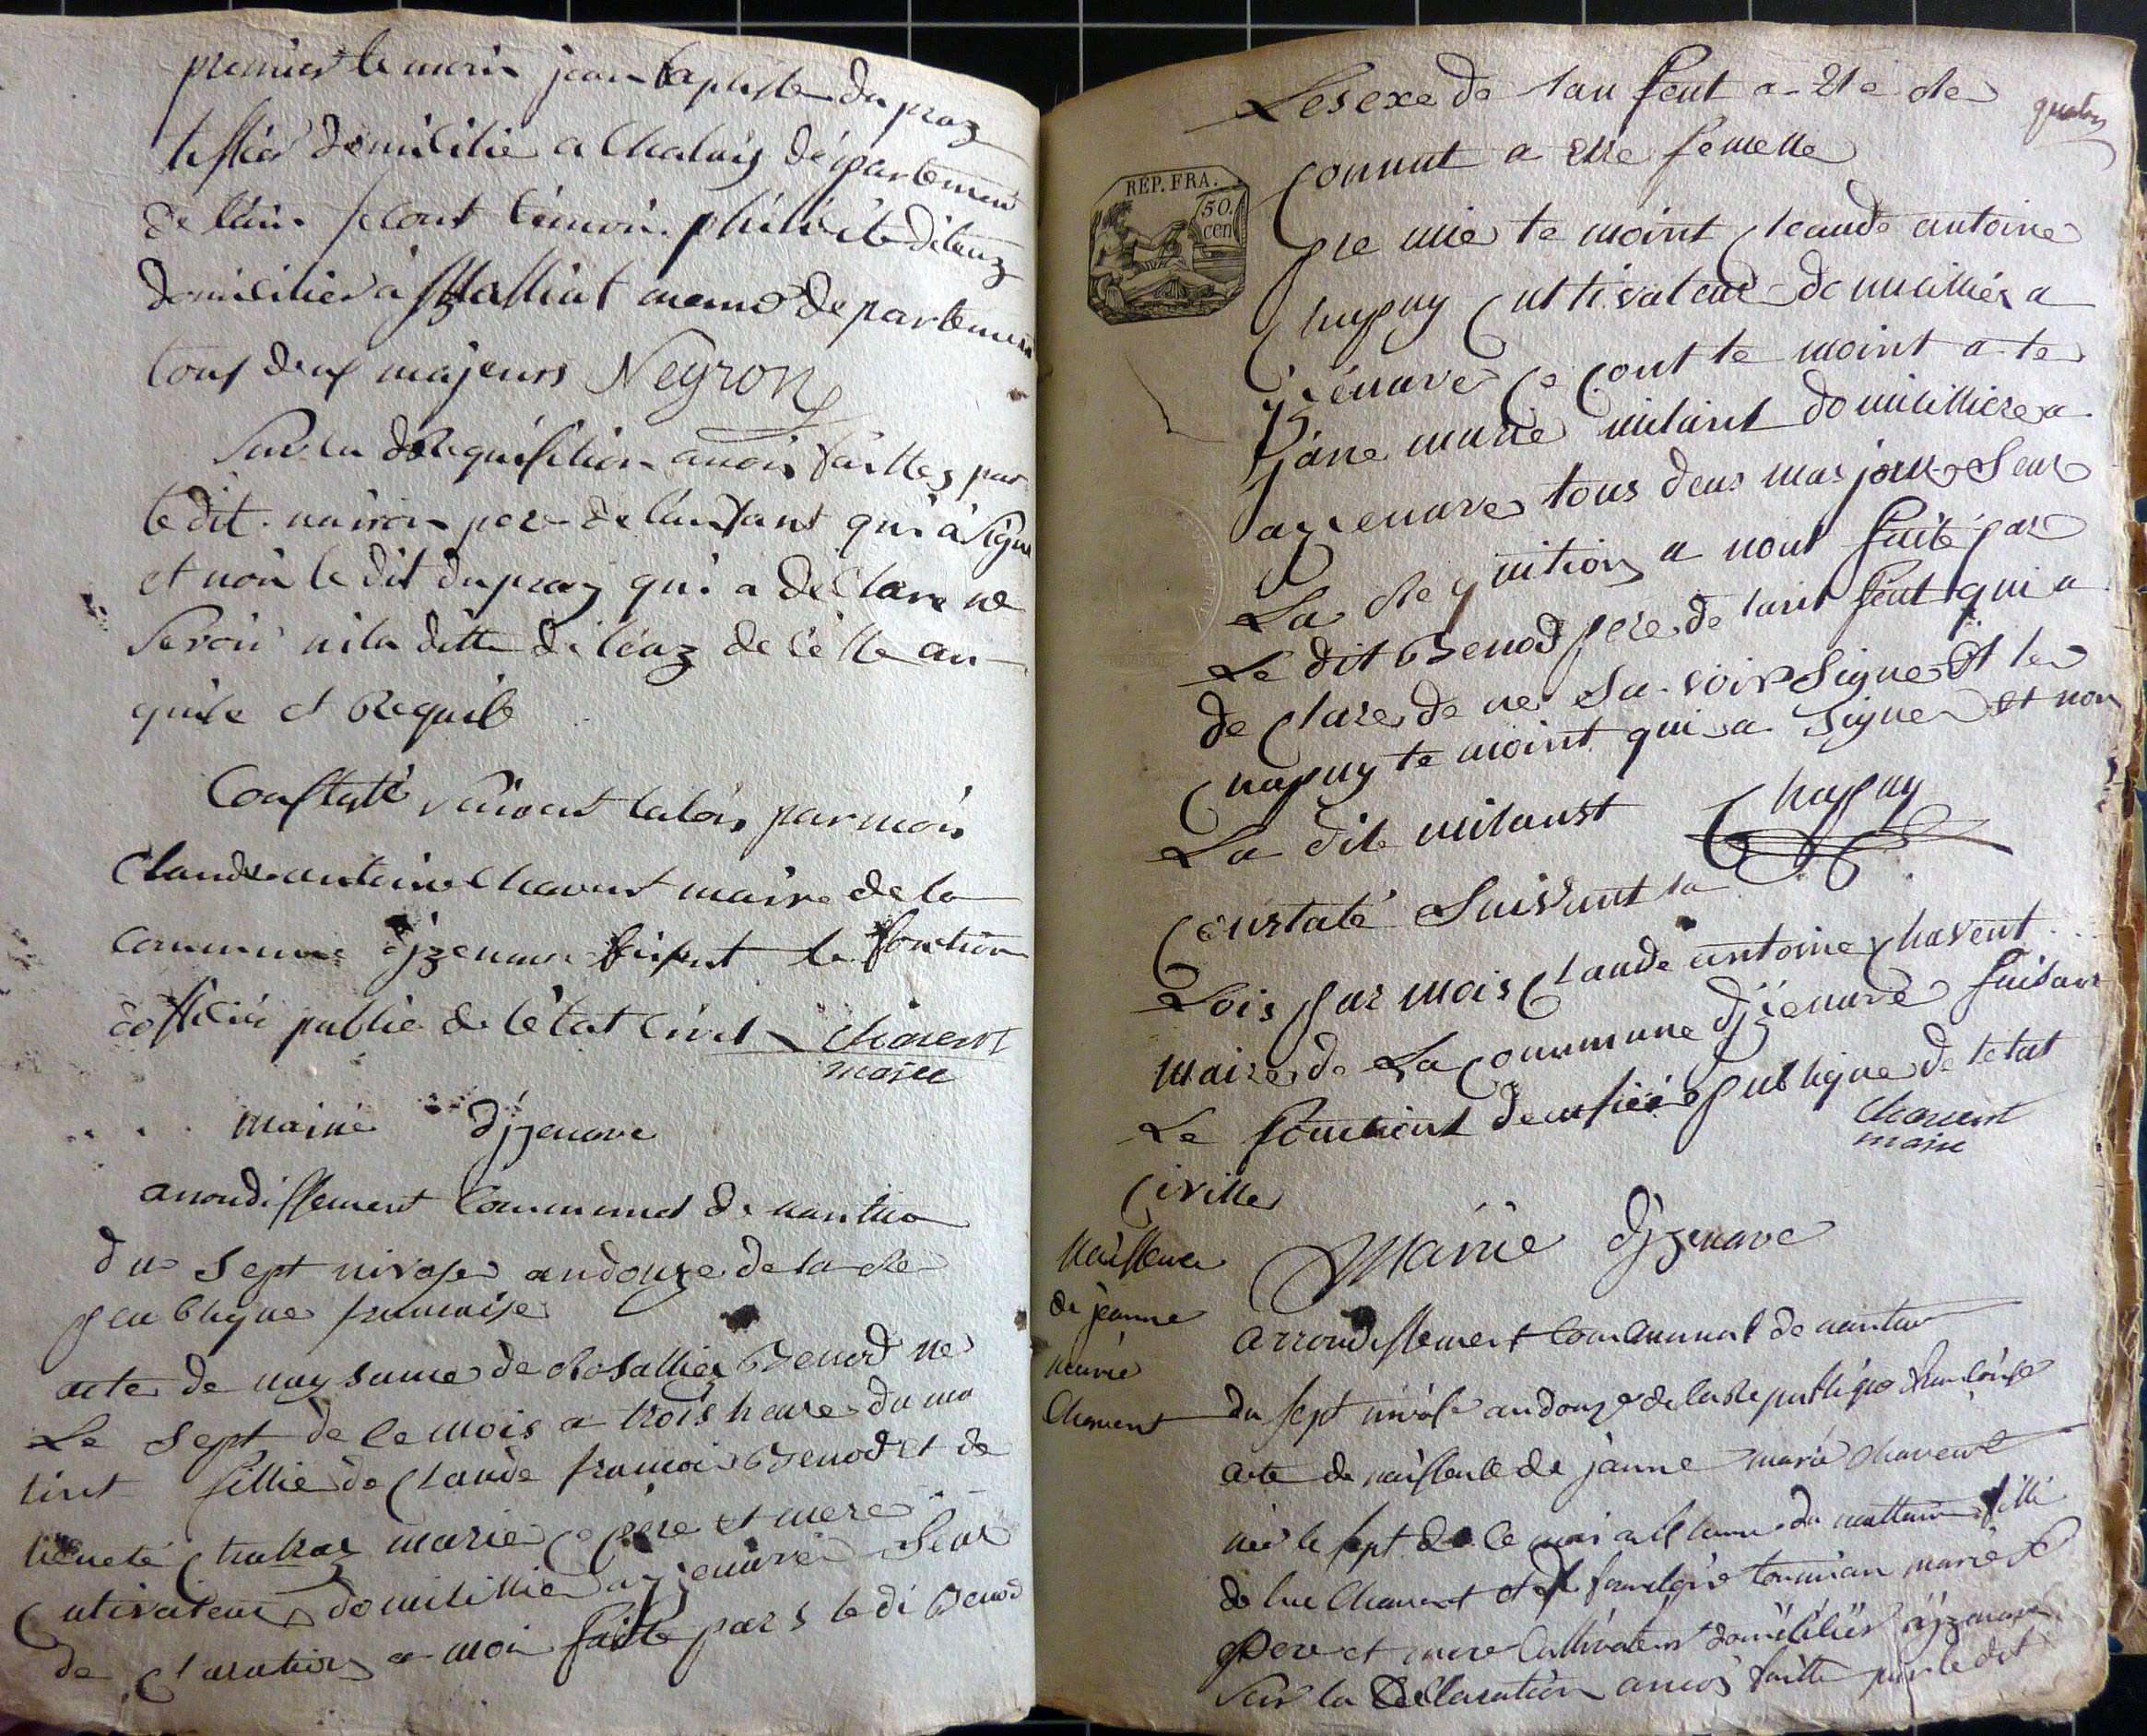 premier te moin jean baptiste du praz
tessier domicilié a Chalay département
de lain second témoin
domicilier à Malliat meme departement
tous deux majeurs Neyron
Sur la Requisition a moi faittes par
le dit nairon pere de lanfant qui à signé
et non le dit dupraz qui a déclare ne
savoir ni la ditte diléaz de celle an
quise et Requise
Constaté suivant la loi par moi
Claude antoine Chavent maire de la
commune djzenave faisant la fonction
dofficié public de létat Civil Chavent
maire
mairie djzenave
arrondissement Communal de nantua
du sept nivose an douze de la Re
peublique francaise
acte de naysance de Rosallies Benod ne
Le Sept de ce mois a trois heure du ma
tint fillie de Claude francois Benod et de
marie père et mere
Cutivateur domicillie a jzenave Seur
de Claration a moi faitte pars le di Benod
Le sexe de lan fent a Eté Re
Connut a Etre femelle
quatorz
REP. FRA.
50.
cen
Pre mier te moint Claude antoine
Chapuy Cultivateur domicillier a
jzenave Se Cont te moint a te
Jane marie milant domicilliere a
a jzenave tous deus mas jeur Seur
La Re quition a nous faite par
Le dit Benod pere de lant fent qui a
de Clare de ne Sa voir Signe Et le
Chapuy te moint qui a Signe et non
La dite milanst Chapuy
Constaté Suivant la
Lois par mois Claude antoine Chavent
maire de La Commune djzenave faisant
Le fonctiont deufficié publique de letat
Civille Chavent
maire
Naissence
de jeanne
marie
Chavent
Mairie djzenave
arrondissement Communal de nantua
du sept nivôse an douze de la Republique francoise
acte de naissance de jeanne marie Chavent
née le sept de ce moi a heure du mattin fillie
de luc Chavent et de tournian mariée
pere et mere Cultivateur domicilier a jzenave
sur la déclaration a moi faitte par le dit